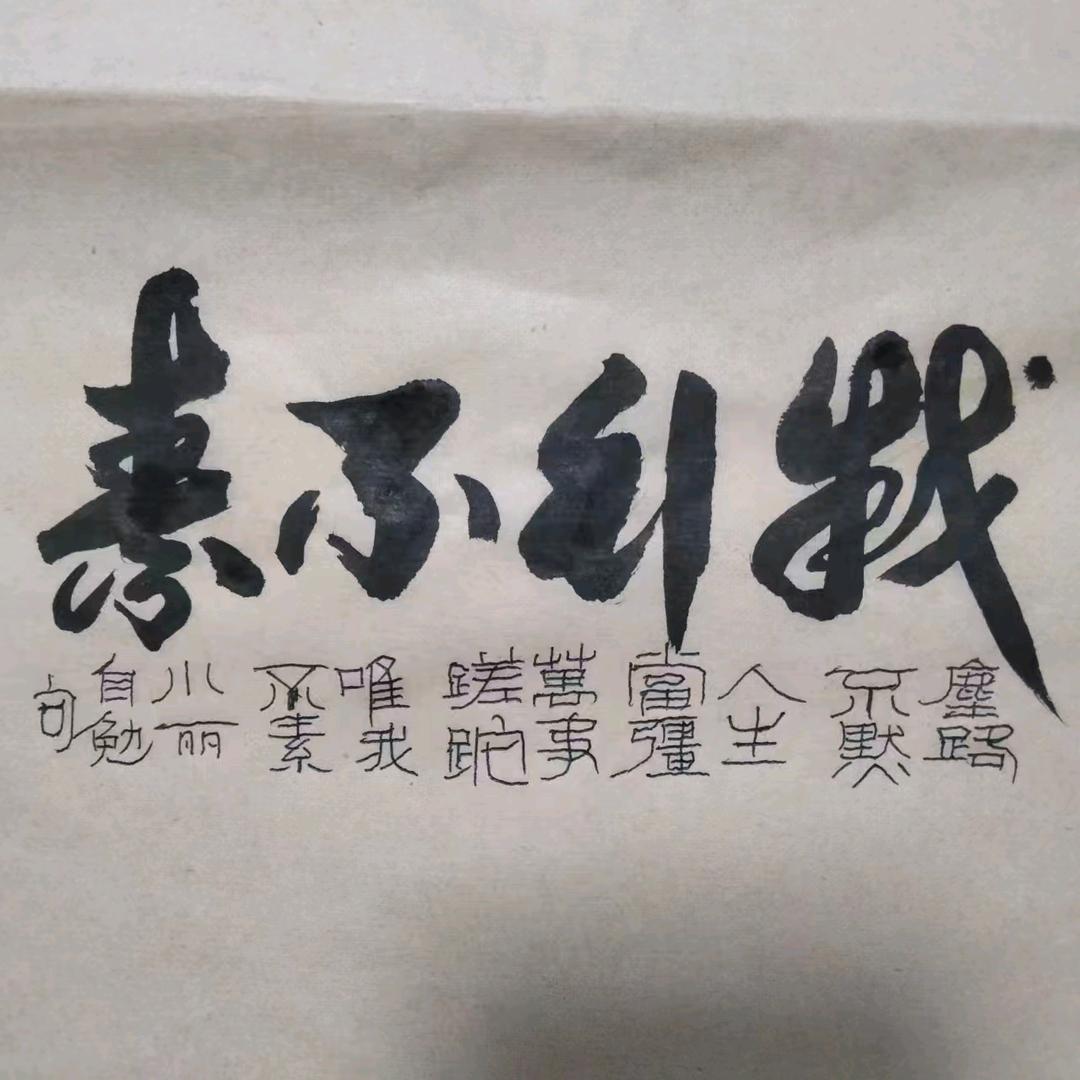 我行不素
塵路
不默
人生
當彊
萬事
蹉跎
唯我
不素
小丽
自勉
句